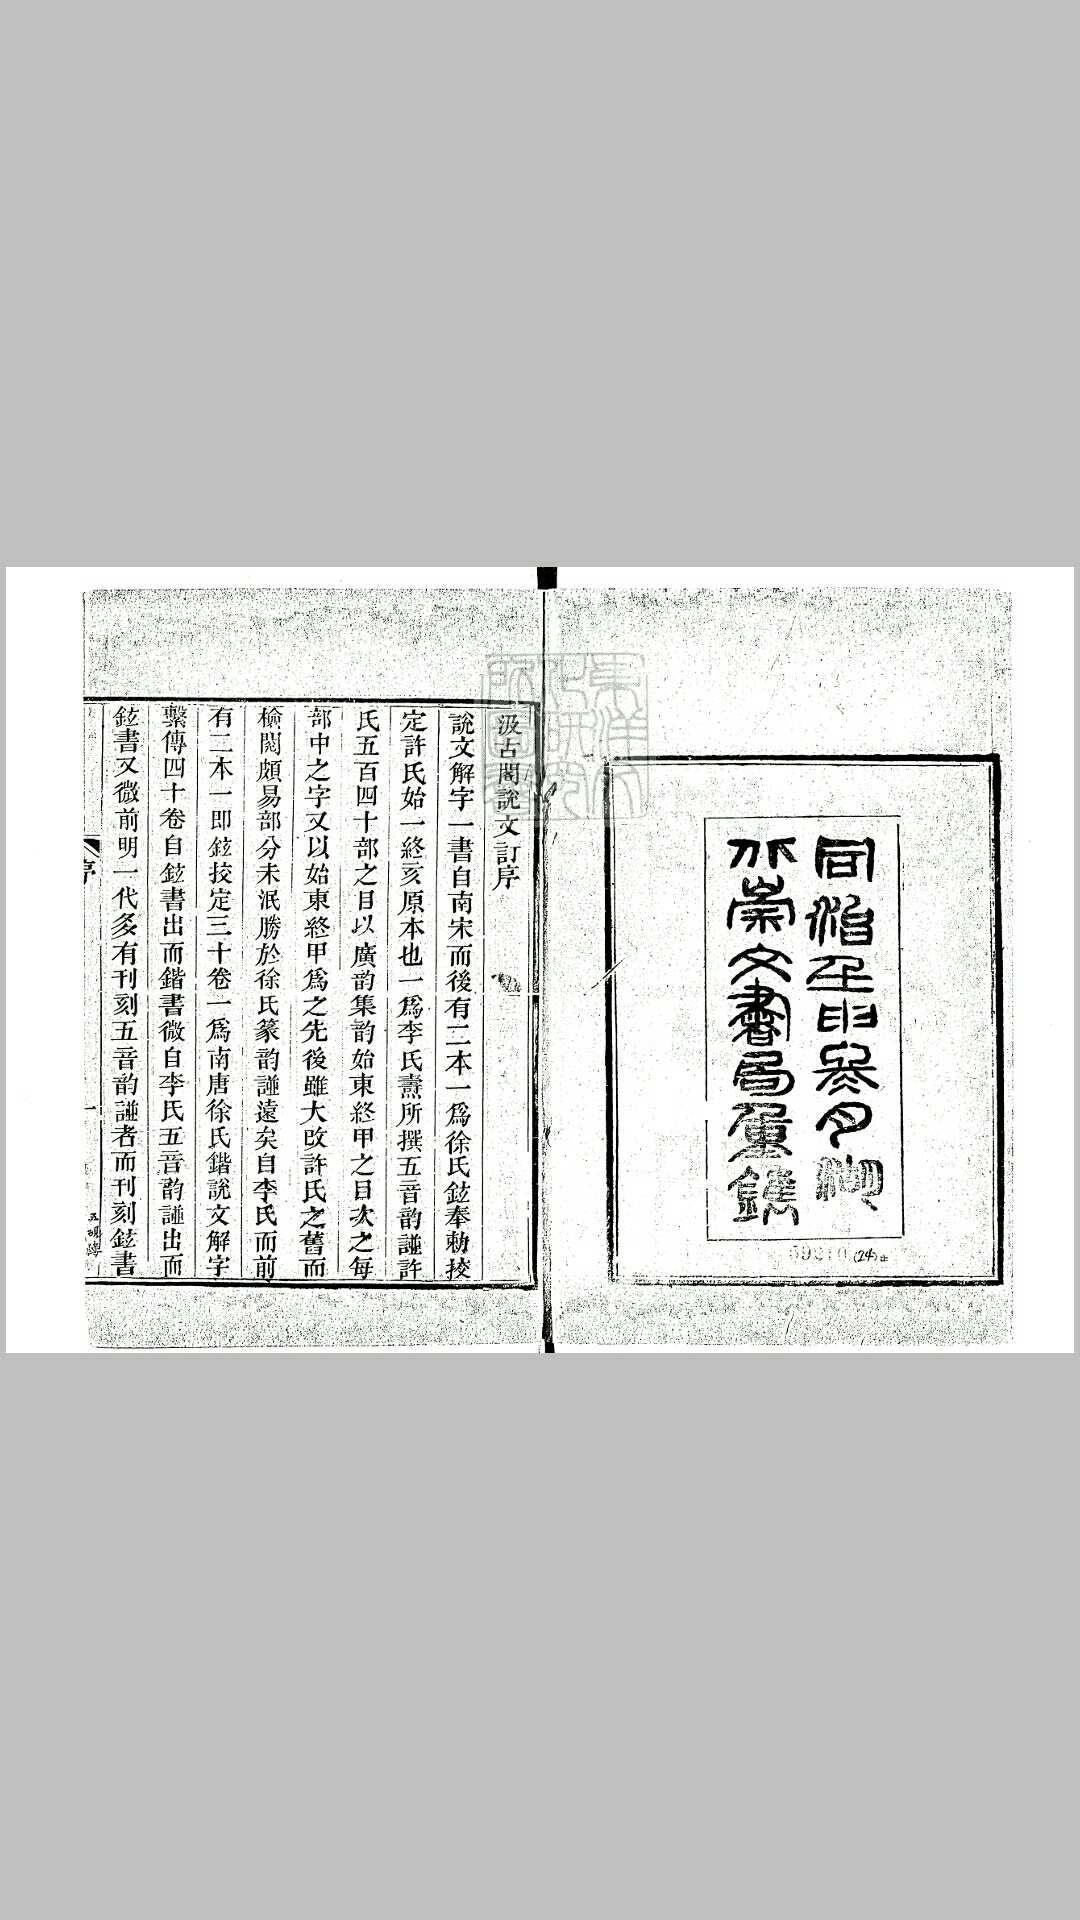 同治壬申叁月湖
北崇文書局重鐫
59210 (24)
汲古閣說文訂序
說文解字一書自南宋而後有二本一爲徐氏鉉奉勅挍
定許氏始一終亥原本也一爲李氏燾所撰五音韵譜許
氏五百四十部之目以廣韵集韵始東終甲之目次之每
部中之字又以始東終甲爲之先後雖大改許氏之舊而
檢閱頗易部分未泯勝於徐氏篆韵譜遠矣自李氏而前
有二本一即鉉挍定三十卷一爲南唐徐氏鍇說文解字
繫傳四十卷自鉉書出而鍇書微自李氏五音韵譜出而
鉉書又微前明一代多有刊刻五音韵譜者而刊刻鉉書
序
一